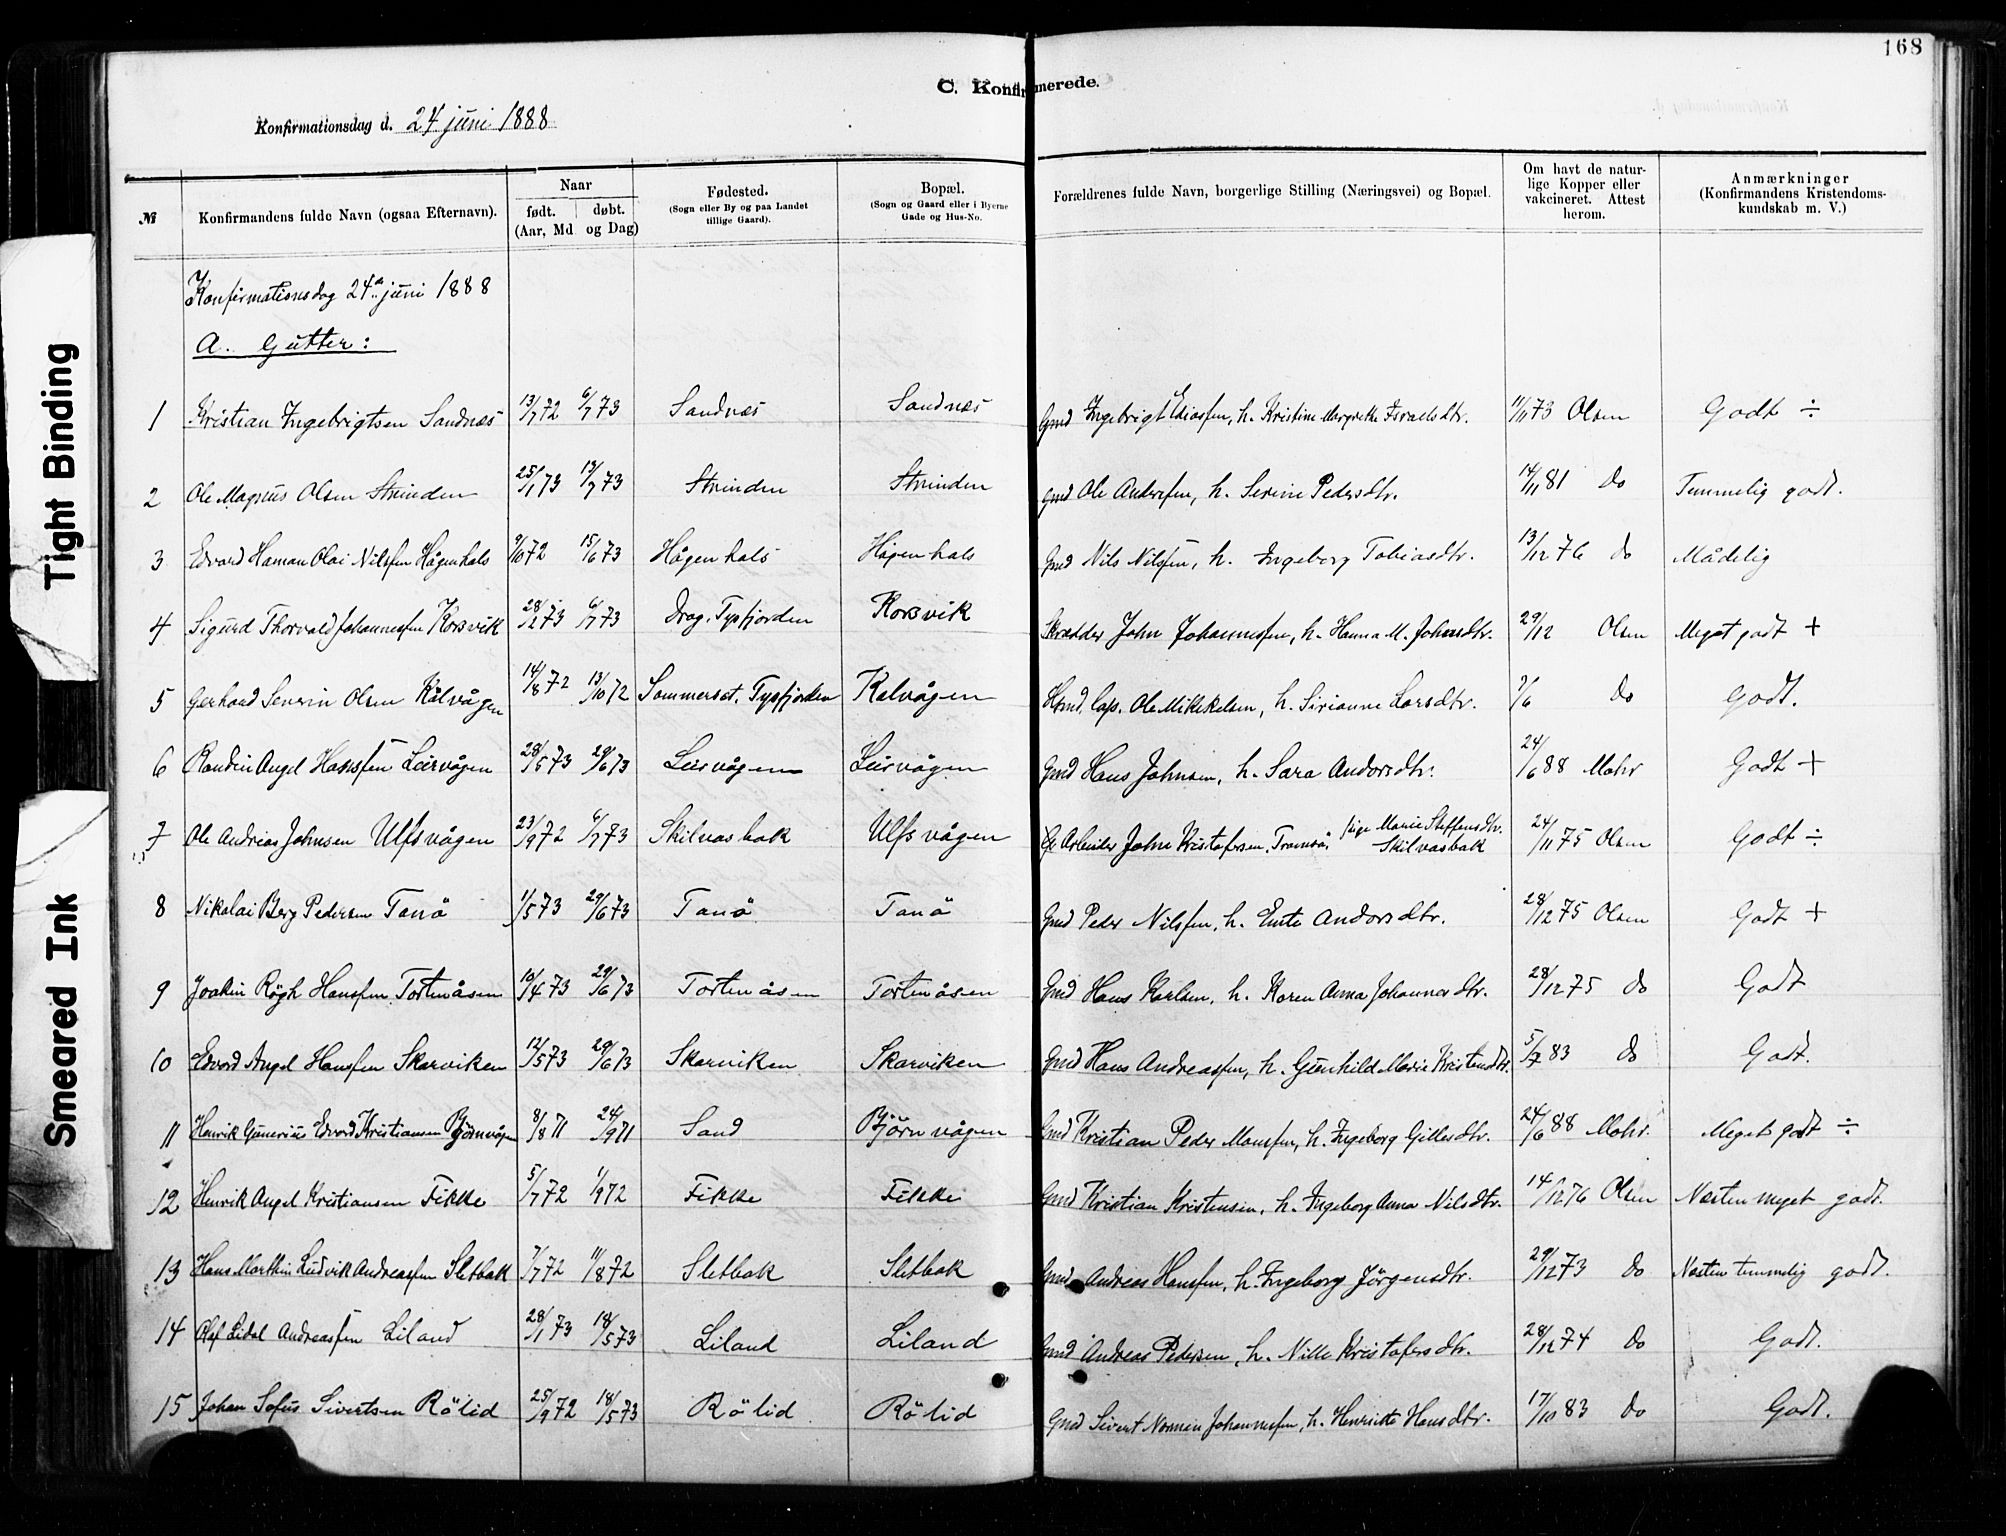 168
C. Konfirmerede.
Konfirmationsdag d. 24 juni 1888
№ Konfirmandens fulde Navn (ogsaa Efternavn). Naar født. døbt. (Aar, Md og Dag) Fødested. (Sogn eller By og paa Landet tillige Gaard). Bopæl. (Sogn og Gaard eller i Byerne Gade og Hus-No. Forældrenes fulde Navn, borgerlige Stilling (Næringsvei) og Bopæl. Om havt de naturlige Kopper eller vakcineret. Attest herom. Anmærkninger (Konfirmandens Kristendomskundskab m. V.)
Konfirmationsdag 24de juni 1888
A. Gutter:
1 Kristian Ingebrigtsen Sandnæs 13/7 72 6/7 73 Sandnæs Sandnæs Gmd Ingebrigt Eliassen, h. Kristine Margrethe Israelsdtr. 11/11 73 Olsen Godt ÷
2 Ole Magnus Olsen Strinden 25/1 73 13/7 73 Strinden Strinden Gmd Ole Andersen, h. Serine Pedersdtr. 14/11 81 Do Temmelig godt.
3 Edvard Haman Olai Nilssen Hågenhals 9/10 72 15/6 73 Hågenhals Hågenhals Gmd Nils Nilssen, h. Ingeborg Tobiasdtr. 13/12 76 do Mådelig
4 Sigurd Thorvald Johannessen Korsvik 28/12 73 6/7 73 Drag, Tysfjorden Korsvik Skrædder John Johannessen, h. Hanna M. Johnsdtr. 29/12 Olsen Meget godt +
5 Gerhard Severin Olsen Kålvågen 14/8 72 13/10 72 Sommerset, Tysfjorden Kalvågen lap. Ole Mikkelsen, h. Sirianne Larsdtr. 7/6 Do Godt.
6 Angel Hanssen Leirvågen 28/5 73 29/6 73 Leirvågen Leirvågen Gmd Hans Johnsen, h. Sara Andorsdtr. 24/6 88 Mohr Godt +
7 Ole Andreas Johnsen Ulfsvågen 23/9 72 6/7 73 Skilvasbak Ulfsvågen Arbeider John Kristofersen, Tromsö, pige Marie Steffensdtr. Skilvasbak 24/11 75 Olsen Godt ÷
8 Nikolai Berg Pedersen Tanö 1/5 73 29/6 73 Tanö Tanö Gmd Peder Nilssen, h. Ente Andorsdtr. 28/12 75 Olsen Godt +
9 Joakin Rögh Hanssen Tortenåsen 10/4 73 29/6 73 Tortenåsen Tortenåsen Gmd Hans Karlsen, h. Karen Anna Johannesdtr. 28/12 75 do Godt
10 Edvard Angel Hanssen Skarviken 12/5 73 29/6 73 Skarviken Skarviken Gmd Hans Andreassen, h. Gunhild Marie Kristensdtr. 5/7 83 do Godt.
11 Henrik Gunerius Edvard Kristiansen Björnvågen 8/8 71 24/9 71 Sand Björnvågen Gmd Kristian Peder Monssen, h. Ingeborg Gillesdtr. 24/6 88 Mohr. Meget godt ÷
12 Henrik Angel Kristiansen Fikke 5/7 72 1/9 72 Fikke Fikke Gmd Kristian Kristensen, h. Ingeborg Anna Nilsdtr. 14/12 76 Olsen Næsten meget godt.
13 Hans Marthin Ludvik Andreassen Sletbak 7/7 72 11/8 72 Sletbak Sletbak Gmd Andreas Hanssen, h. Ingeborg Jörgensdtr. 29/12 73 Do Næsten temmelig godt.
14 Olaf Lidal Andreassen Liland 28/1 73 18/5 73 Liland Liland Gmd Andreas Pedersen, h. Nille Kristofersdtr. 28/12 74 Do Godt.
15 Johan Sofus Sivertsen Rölid 25/9 72 18/5 73 Rölid Rölid Gmd Sivert Norman Johannessen, h. Henrikte Hansdtr. 17/10 83 Do Godt.
Tight Binding
Smeared Ink